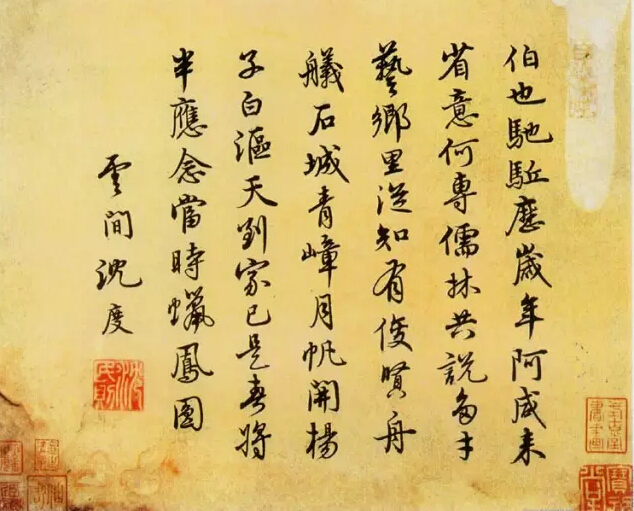 伯也馳駈應歲年阿咸来
省意何專儒林共説多才
藝鄉里從知有俊賢舟
艤石城青嶂月帆開楊
子白漚天到家已是春將
半應念當時蠟鳳圓
雲間沈度